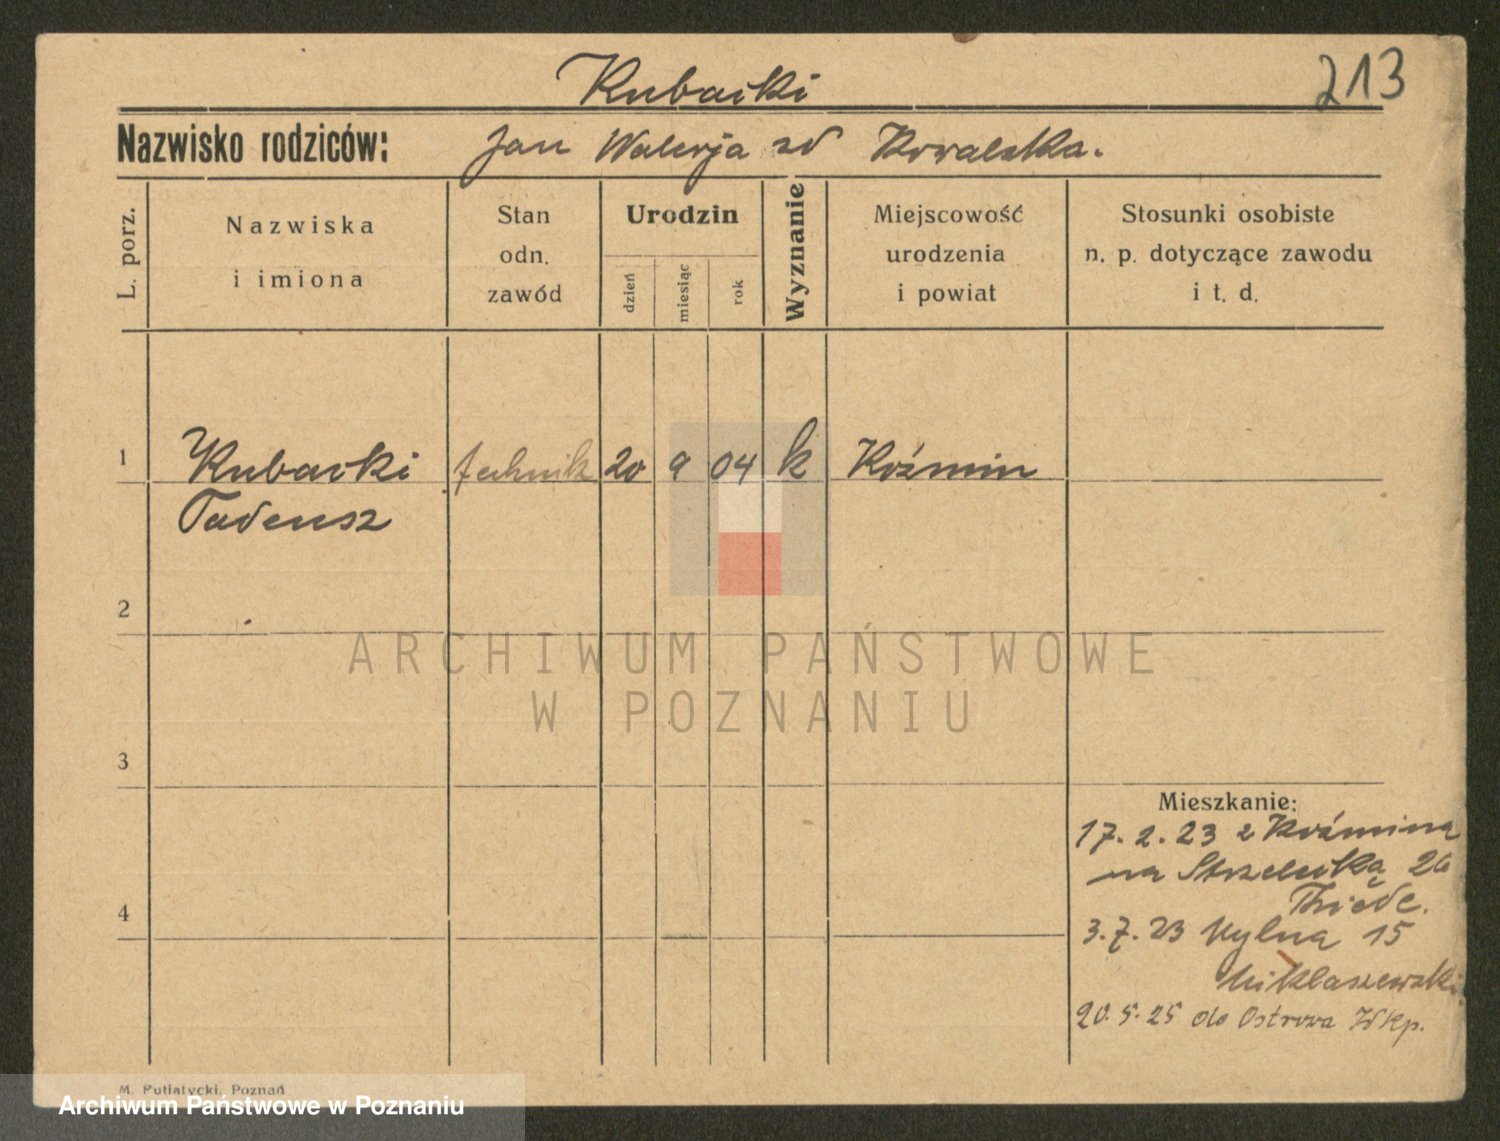 Kubacki
213
Nazwisko rodziców: Jan Walerja zd Kowalska.
L. porz.
Nazwiska
i imiona
Stan
odn.
zawód
Urodzin
dzień
miesiąc
rok
Wyznanie
Miejscowość
urodzenia
i powiat
Stosunki osobiste
n. p. dotyczące zawodu
i t. d.
1 Kubacki technik 20 9 04 k Koźmin
Tadeusz
2
ARCHIWUM PAŃSTWOWE
W POZNANIU
3
Mieszkanie:
17. 2. 23 z Koźmina
na Strzelecką 26
Thiede.
4
3. 7. 23 Wylna 15
Miklaszewski
20. 5. 25 do Ostrowa Wkp.
M. Putiatycki, Poznań
Archiwum Państwowe w Poznaniu